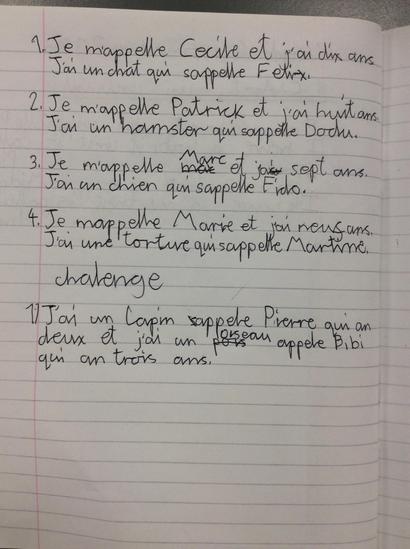 1. Je m'appelle Cecile et j'ai dix ans.
J'ai un chat qui s'appelle Felix.
2. Je m'appelle Patrick et j'ai huit ans.
J'ai un hamster qui s'appelle Dodu.
3. Je m'appelle Marc et j'ai sept ans.
J'ai un chien qui s'appelle Fido.
4. Je m'appelle Marie et j'ai neuf ans.
J'ai une torture qui s'appelle Martine.
chalenge
1) J'ai un Lapin sappele Pierre qui an
deux et j'ai un oiseau appele Bibi
qui an trois ans.